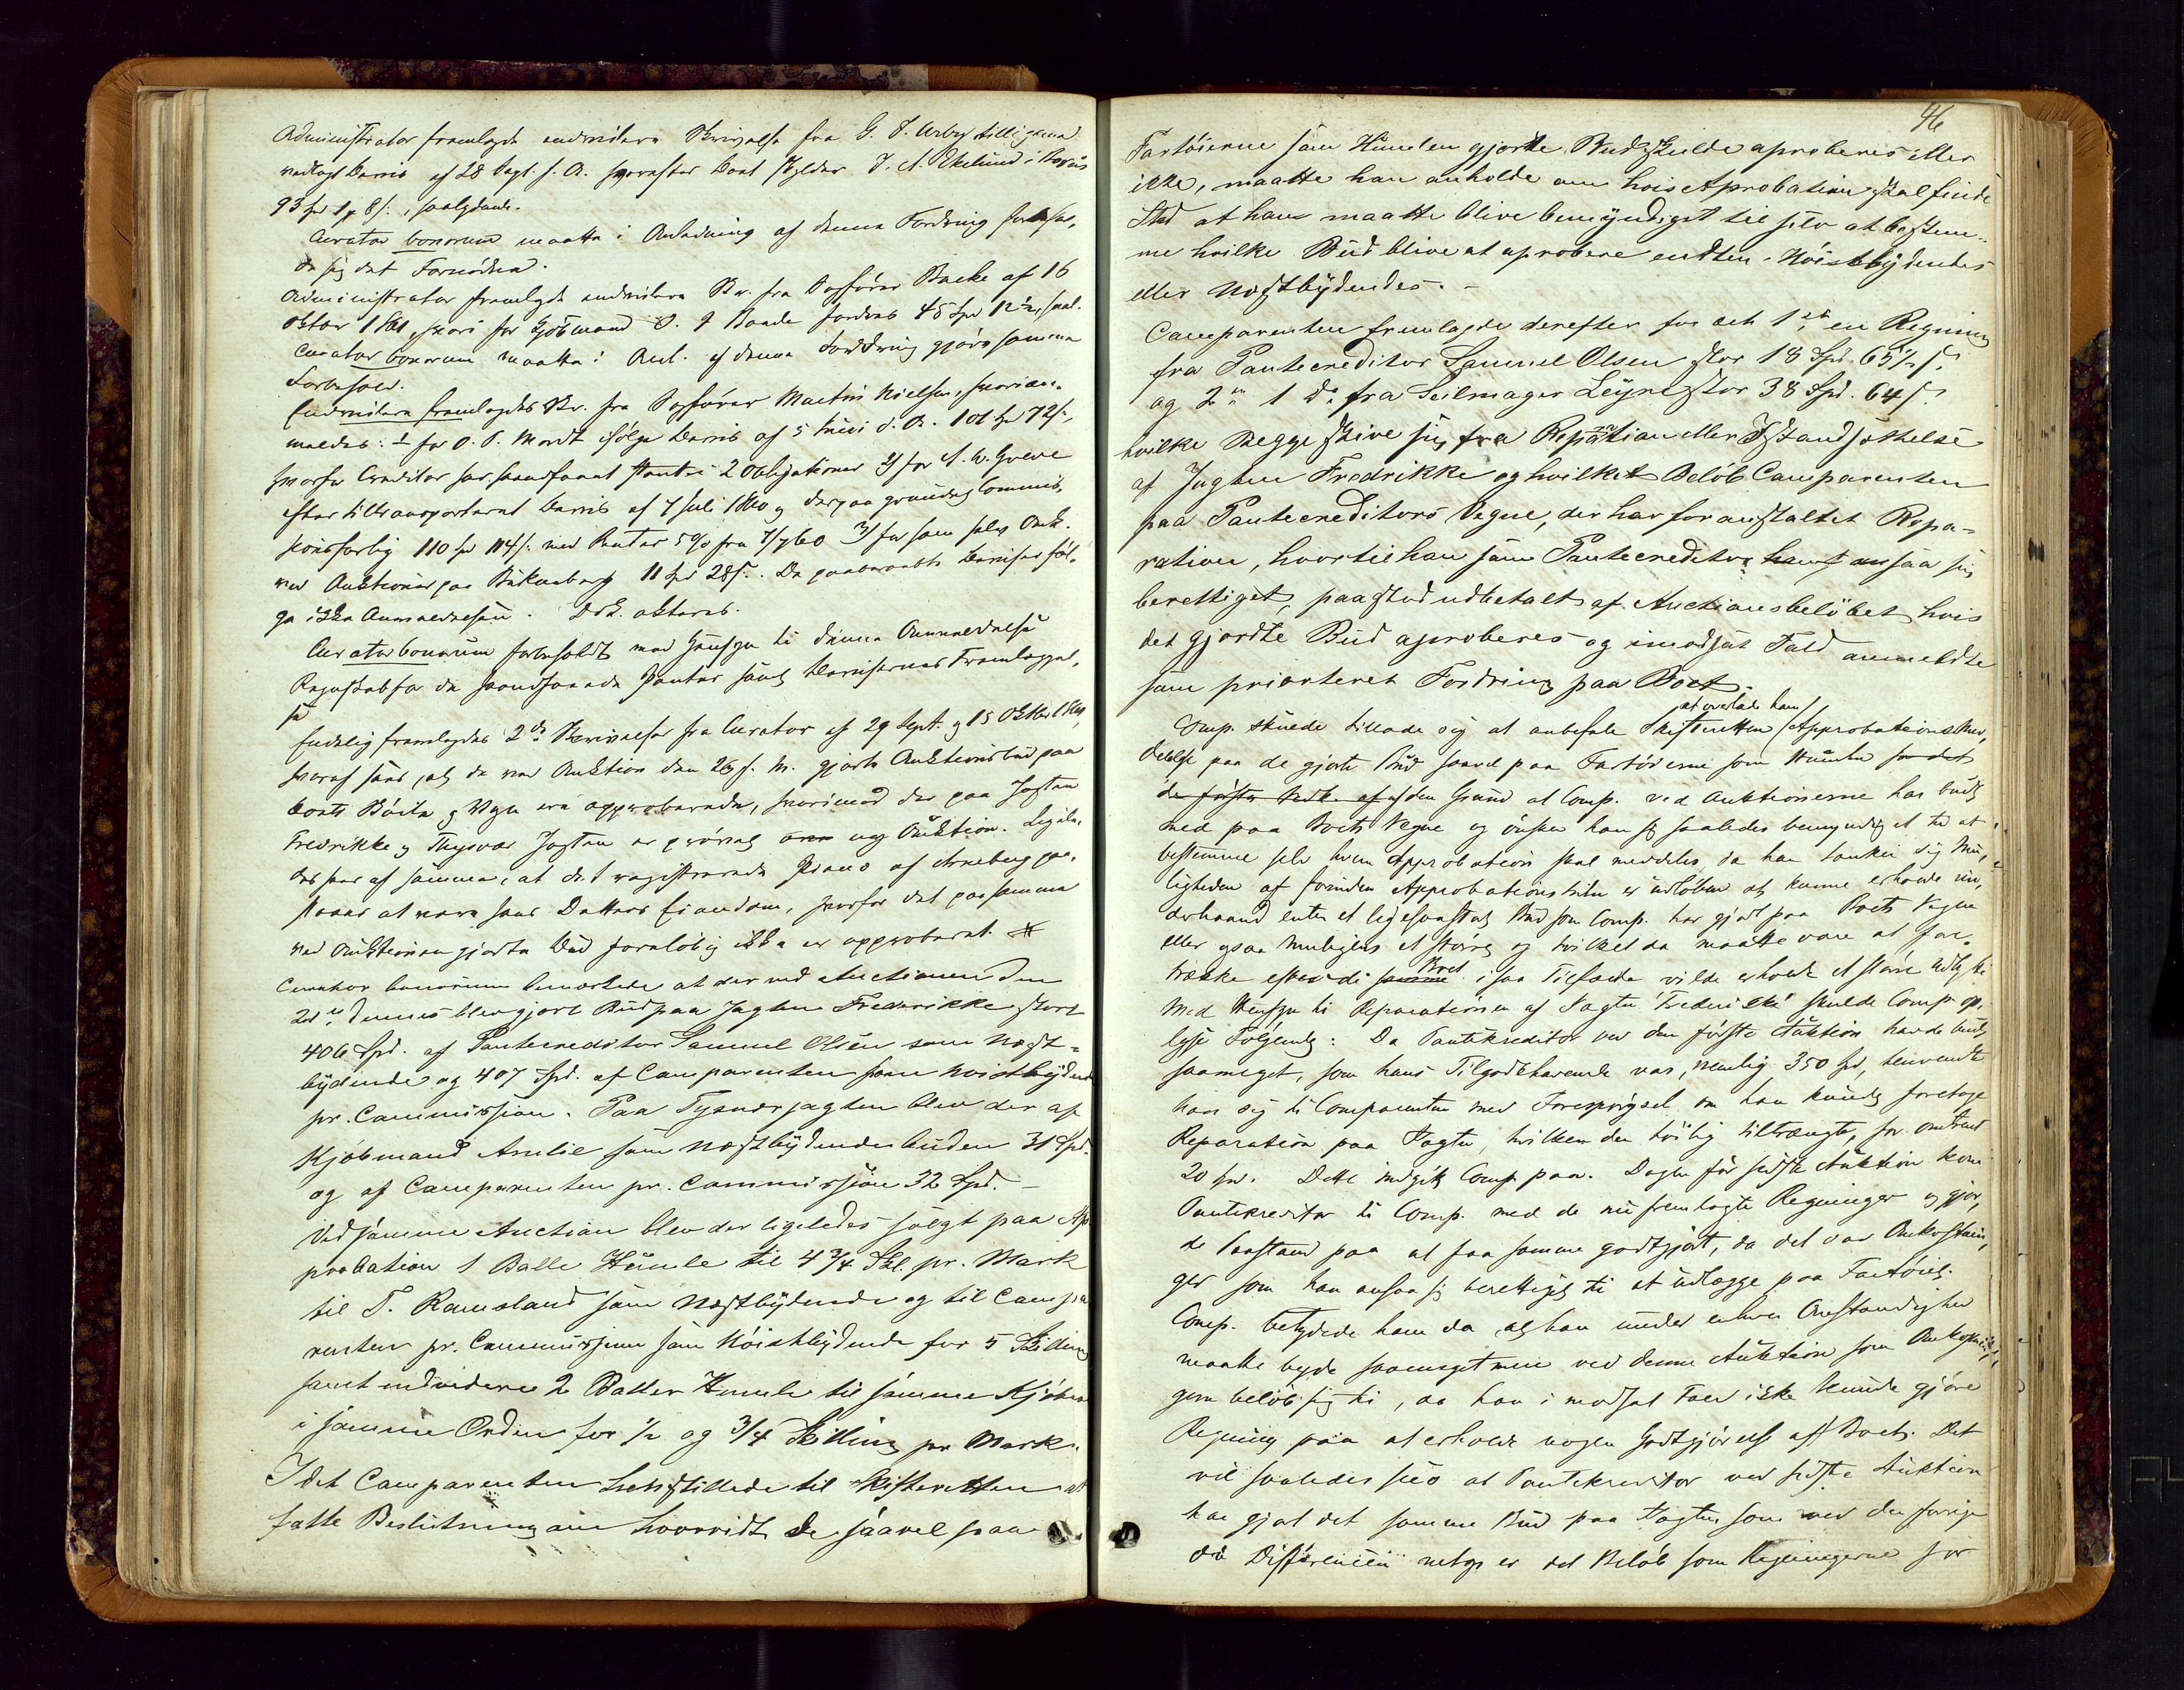 Administrator fremlagde endvidere Skrivelse fra G. J. tilligemed
vedlagt Bevis af 28 Sept. f. A. hvorefter Boet skylder J. A. Ekelund i
93 Spd 1 8 s., saalydende.
Curator bonorum maatte i Anledning af denne Fordring forbehol,
de sig det Fornødne.
Administrator fremlagde endvidere Br. fra Sagfører Backe af 16
Oktbr 1861, hvori for Kjøbmand O. J Baade fordres 45 Spd 12½ s, saal.
Curator bonorum maatte i Anl. af denne Fordring gjøre samme
Forbehold.
Endvidere fremlagdes Br. fra Sagfører Martin Nielsen, hvori an-
meldes: 1 for O. S. Mordt ifølge Bevis af 5 Juni d. A. 101 Spd 72 s.,
hvorfor Creditor har haandfaaet Pant i 2 Obligationer 2) for A. W. Greve
efter tiltransporteret Bevis af 7 Juli 1860 og derpaa grundet Commis,
sionsforlig 110 Spd 114 s. med Renter 5% fra 7/7 60 3) for som solgt Auk.
ved Auktioner paa 11 Spd 28 s. De paaberaabte Beviser føl,
ge ikke Anmeldelsen. Dok. akteres.
Curator bonorum forbeholdt med Hensyn til denne Anmeldelse
Regnskab for de haandfaaede Panter samt Bevisernes Fremlæggel,
se
Endelig fremlagdes 2de Skrivelser fra Curator af 29 Sept. og 15 Oktbr 1861,
hvoraf sees, at de ved Auktion den 26 f. M. gjorte Auktionsbud paa
Boets Bøile og Vogn ere approberede, hvorimod der paa Jagten
Fredrikke og Thysvær Jagten er prøvet ny Auktion. Ligele,
des sees af samme, at det registrerede Piano af Arneberg paa,
staaes at være hans Datters Eiendom, hvorfor det paa samme
ved Auktionen gjorte Bud foreløbig ikke er approberet.
Curator bonorum bemærkede at der ved Auctionen den
2den dennes blev gjort Bud paa Jagten Fredrikke stort
406 Spd. af Pantecreditor Samuel Olsen som Næst-
bydende og 407 Spd. af Camparenten som Høistbydende
pr. Cammission. Paa Tysvær jagten blev der af
Kjøbmand Amlie som Næstbydende buden 31 Spd.
og af Camparenten pr. Cammission 32 Spd. –
Ved samme Auction blev der ligeledes solgt paa Ap
probation 1 Balle Humle til 4 3/4 Skl. pr. Mark
til T. Ramsland som Næstbydende og til Campa
renten pr. Cammission som Høistbydende for 5 Skilling
samt endvidere 2 Baller Humle til samme Kjøbere
i samme Orden for ½ og 3/4 Skilling pr Mark.
Idet Camparenten henstillede til Skifteretten at
fatte Beslutning om hvorvidt de saavel paa
46
Fartøierne som Humlen gjorte Bud skulde aproberes eller
ikke, maatte han anholde om hvis Aprobation skal finde
Sted at han maatte blive bemyndiget til selv at bestem-
me hvilke Bud blive at aprobere endten Høistbydendes
eller Næstbydendes. –
Camparenten fremlagde derefter for det 1ste en Regning
fra Pantecreditor Samuel Olsen stor 18 Spd. 65½ s.
og 2en 1 do fra Seilmager Leyne stor 38 Spd. 64 s.
hvilke Begge skrive sig fra Repration eller Istandsettelse
af Jagten Fredrikke og hvilket Beløb Camparenten
paa Pantecreditors Vegne, der har foranstaltet Repa-
ration, hvortil han som Pantecreditor ansaa sig
berettiget, paastod udbetalt af Auctionsbeløbet hvis
det gjordte Bud aproberes og i modsat Fald anmeldte
som prioriteret Fordring paa Boet.
at overlade ham
Comp. skulde tillade sig at anbefale Skifteretten Approbations Med,
delelse paa de gjorte Bud saavel paa Fartøierne som Humlen for det
de første Vedk. af af den Grund at Comp. ved Auktionerne har budt
med paa Boets Vegne og ønsker han sig saaledes bemyndiget til at
bestemme selv hvem Approbation skal meddeles, da han tænker sig Mu,
ligheden af forinden Approbationstiden er udløben at kunne erholde un,
derhaand enten et ligesaastort Bud som Comp. har gjort paa Boets Vegne
eller ogsaa muligens et større og hvilket da maatte være at fore,
trække efterdi samme Boet i saa Tilfælde vilde erholde et større Udbytte
Med Hensyn til Reparationen af Jagten Fredrikke skulde Comp. op,
lyse Følgende: Da Pantekreditor ved den første Auktion havde budt
saameget, som hans Tilgodehavende var, nemlig 350 Spd, henvendte
han sig til Comparenten med Forespørgsel om han kunde foretage
Reparation paa Jagten, hvilken den høilig tiltrængte, for omtrent
20 Spd. Dette indgik Comp paa. Dagen før sidste Auktion kom
Pantekreditor til Comp. med de nu fremlagte Regninger og gjor,
de Paastand paa at faa samme godtgjort, da det var Omkostnin,
ger som han ansaa sig berettiget til at udlægge paa Fartøiet.
Comp. betydede ham da at han under enhver Omstændighed
maatte byde saameget mere ved denne Auktion som Omkostnin,
gerne beløb sig til, da han i modsat Fald ikke kunde gjøre
Regning paa at erholde nogen Godtgjørelse af Boet. Det
vil saaledes sees at Pantekreditor ved sidste Auktion
har gjort det samme Bud paa Jagten som ved den forrige
da Differencen netop er det Beløb som Regningerne for